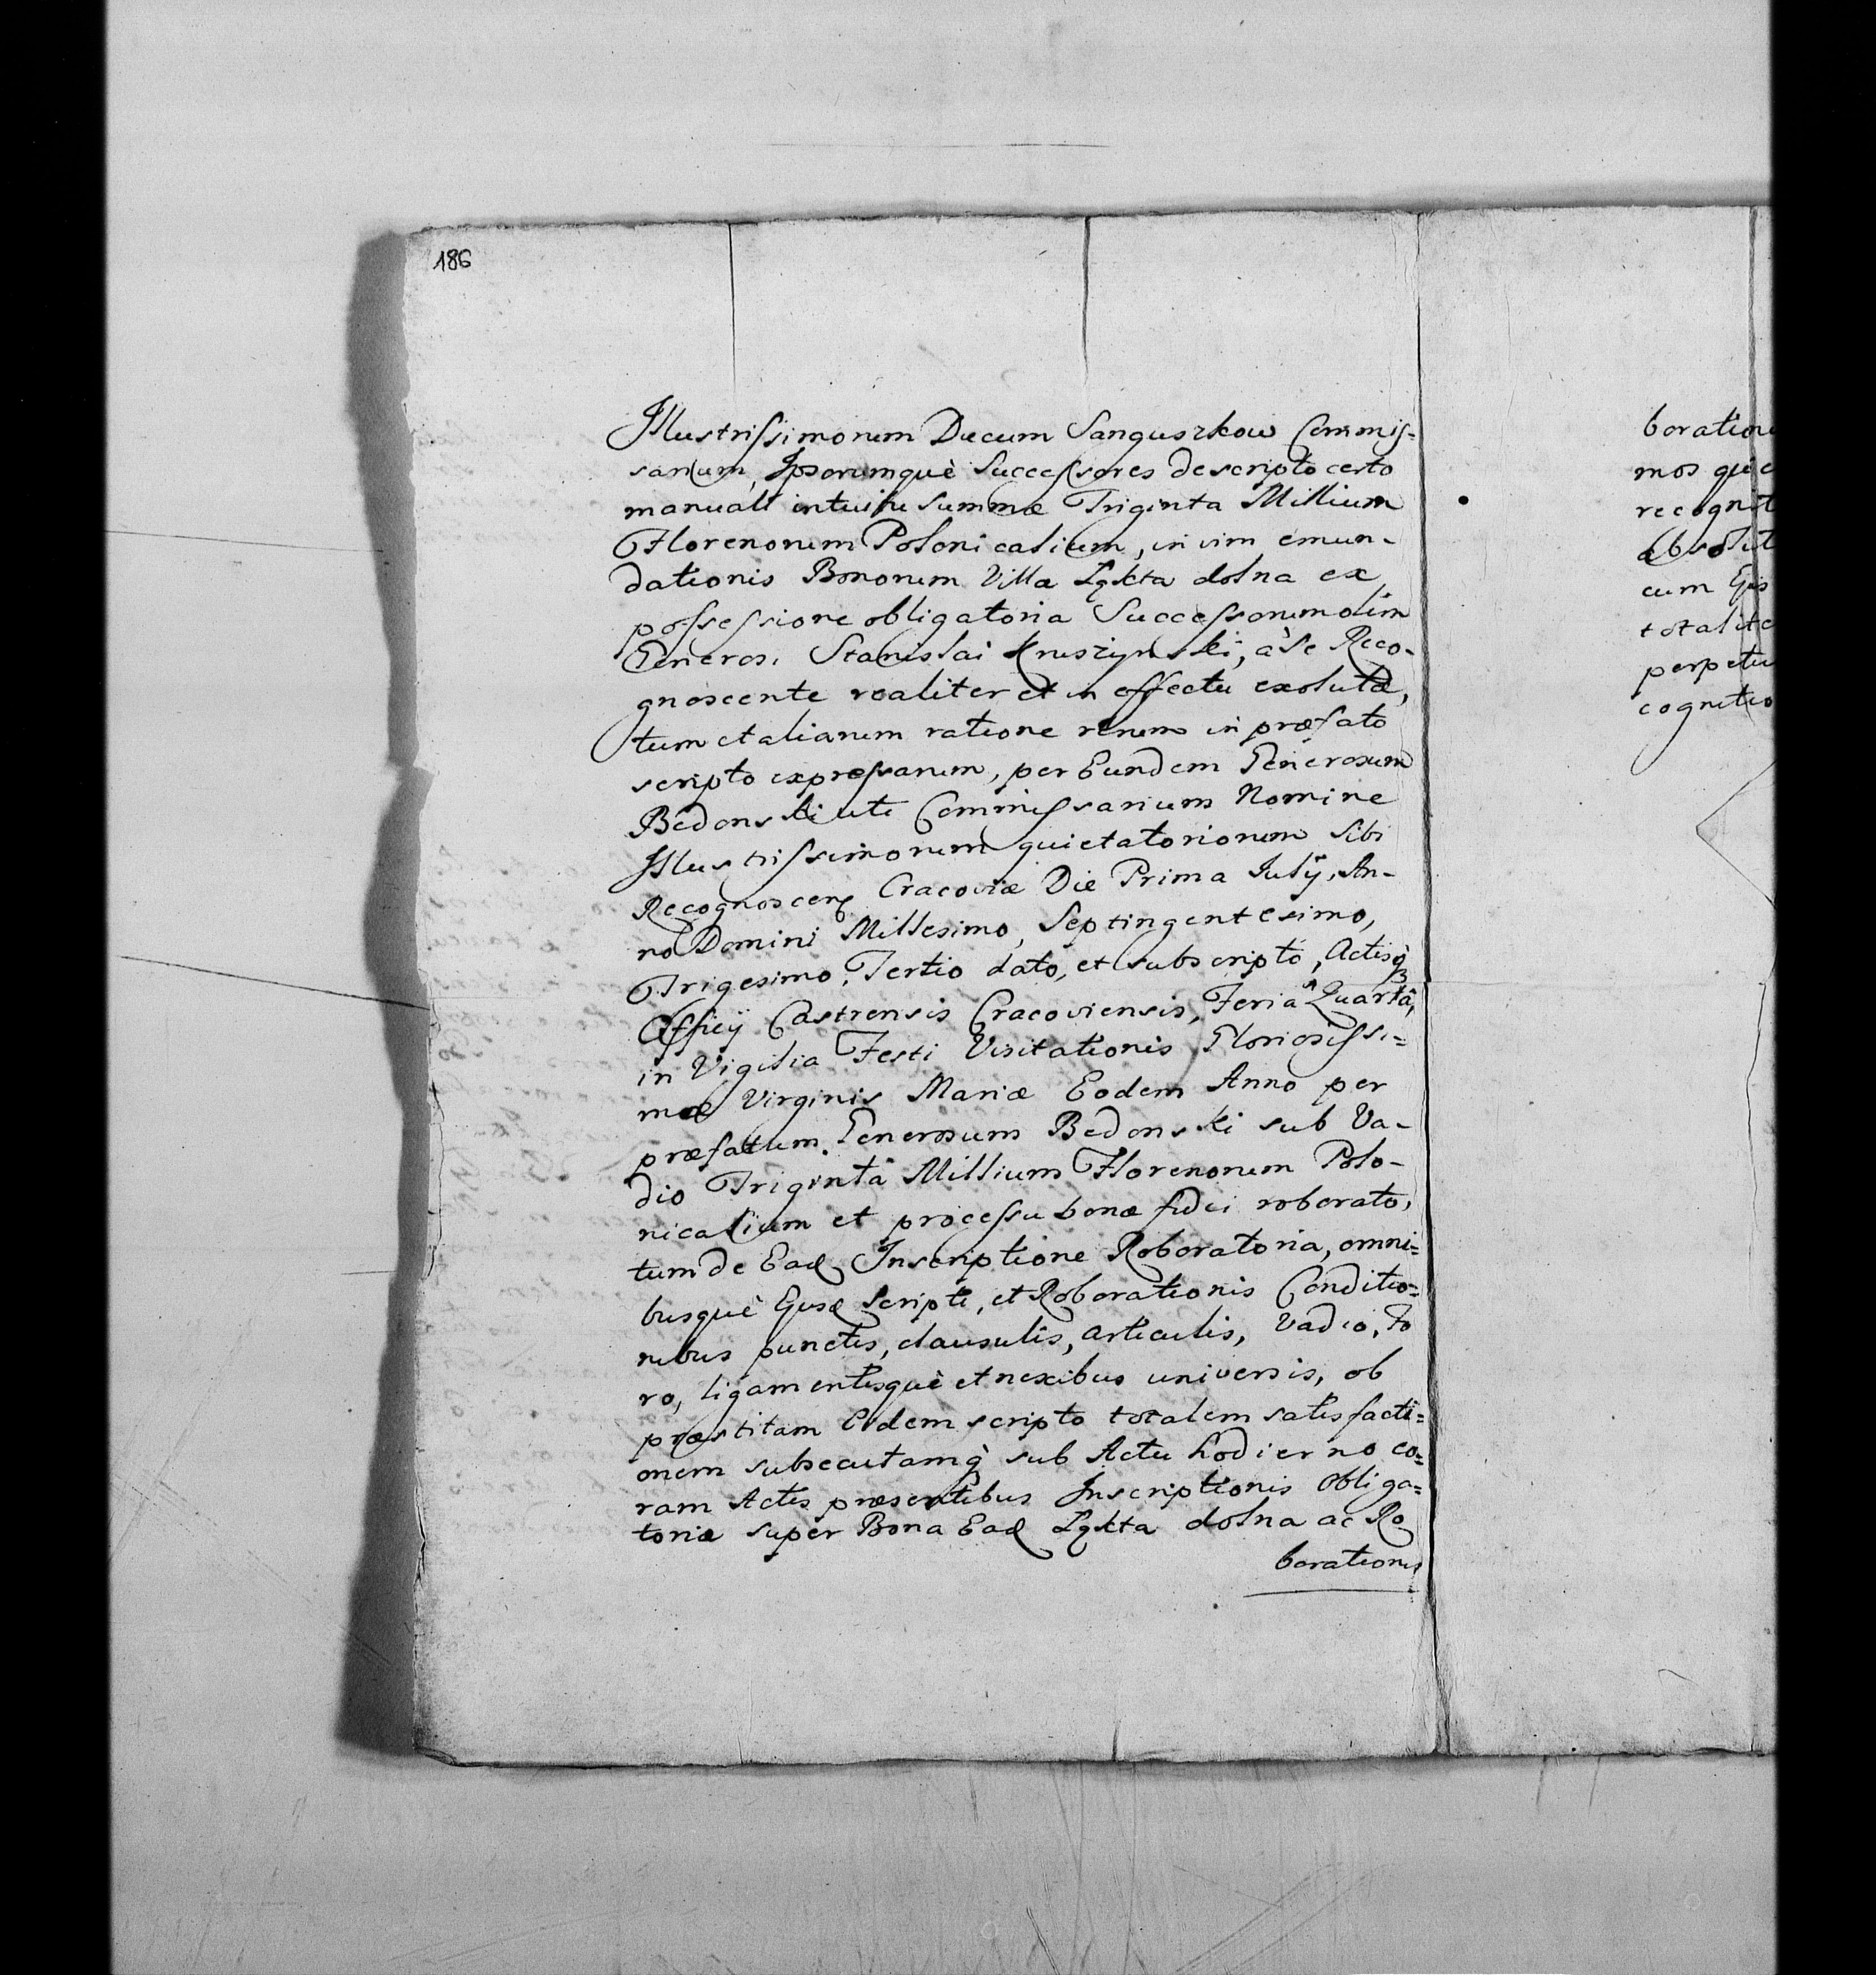 186
Illustrissimorum Ducum Sanguszkow Commis-
sarium, Ipsorumquè Successores de scripto certo
manuali intuitu Summæ Triginta Millium
Florenorum Polonicalium, in vim emun-
dationis Bonorum Villæ Łękta dolna ex
possessione obligatoria Successorum olim
Generosi Stanislai Kruszyński, à Se Reco-
gnoscente realiter et in effectu exolutæ,
tum et aliarum ratione rerum in præfato
scripto expressarum, per Eundem Generosum
Bedonski uti Commissarium Nomine
Illustrissimorum quietatoriorum Sibi
Recognoscen Cracoviæ Die Prima Julij, An-
no Domini Millesimo, Septingentesimo,
Trigesimo, Tertio dato, et subscripto, Actisq̀
Officij Castrensis Cracoviensis, Feria Quartâ,
in Vigilia Festi Visitationis Gloriosissi=
mæ Virginis Mariæ Eodem Anno per
præfatum Generosum Bedonski sub Va-
dio Trigintâ Millium Florenorum Polo-
nicalium et processu bonæ fidei roborato,
tum de Ead Inscriptione Roboratoria, omni=
busquè Ejusd Scripti, et Roborationis Conditio=
nibus punctis, clausulis, articulis, Vadio, Fo
ro, ligamentisquè et nexibus universis, ob
præstitam Eidem scripto totalem satisfacti=
onem subsecutamq̀ sub Actu hodierno co=
ram Actis præsentibus Inscriptionis Obliga=
toriæ super Bona Ead Łękta dolna ac Ro
borationis
boration
mos
recognit
absolut
cum Ejus
totalite
perpetu
cognitio